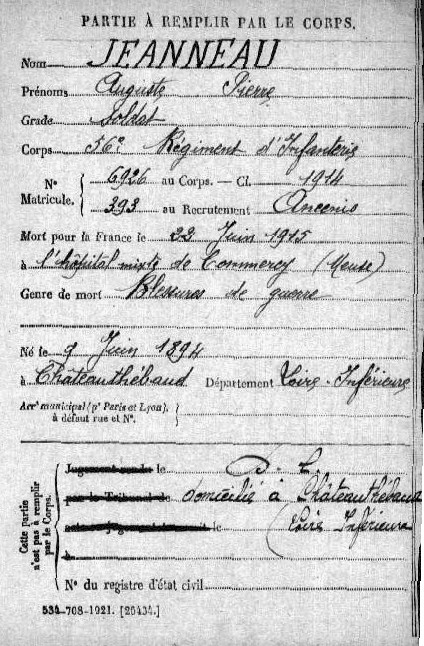 PARTIE À REMPLIR PAR LE CORPS.
Nom JEANNEAU
Prénoms Auguste Pierre
Grade Soldat
Corps 56e Régiment d'Infanterie
N° Matricule. { 6926 au Corps. — Cl. 1914
393 au Recrutement Ancenis
Mort pour la France le 22 Juin 1915
à l'hôpital mixte de Commercy (Meuse)
Genre de mort Blessures de guerre
Né le 9 Juin 1894
à Châteauthébaud Département Loire-Inférieure
Arrt municipal (pr Paris et Lyon),
à défaut rue et N°.
Cette partie n'est pas à remplir par le Corps.
Jugement rendu le D. C.
par le Tribunal de domicilié à Châteauthébaud
le (Loire Inférieure
à
N° du registre d'état civil
534-708-1921. [26434.]